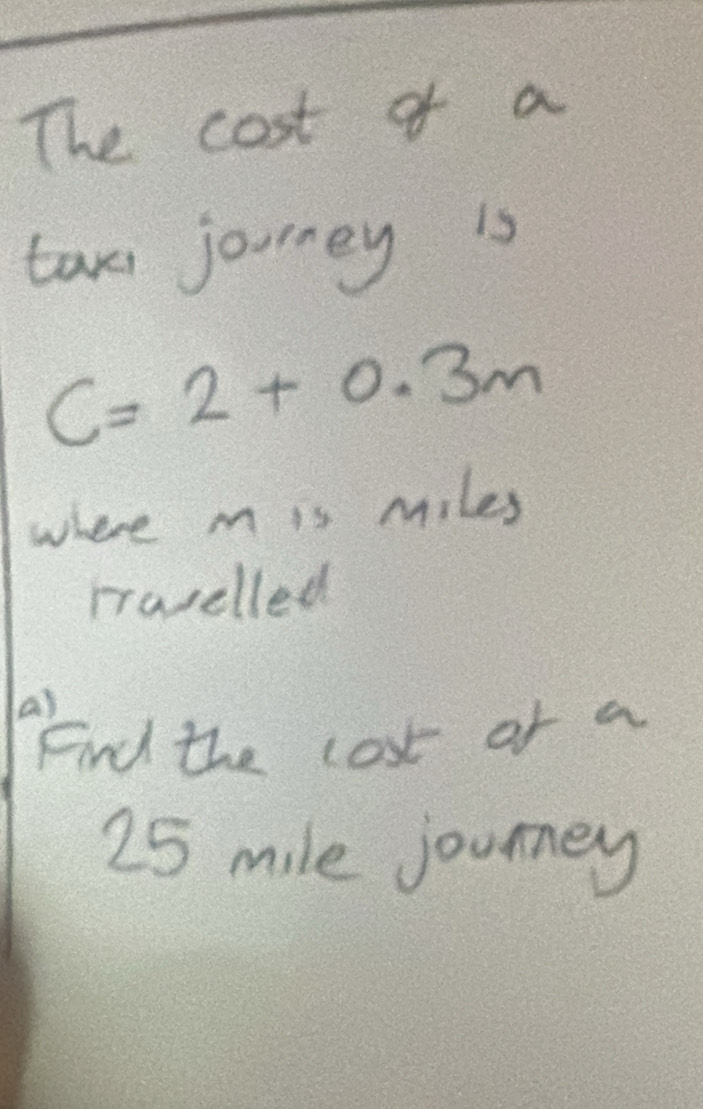 The cost of a
taxi journey is
C = 2 + 0.3m
where m is miles
travelled
a) Find the cost of a
25 mile journey